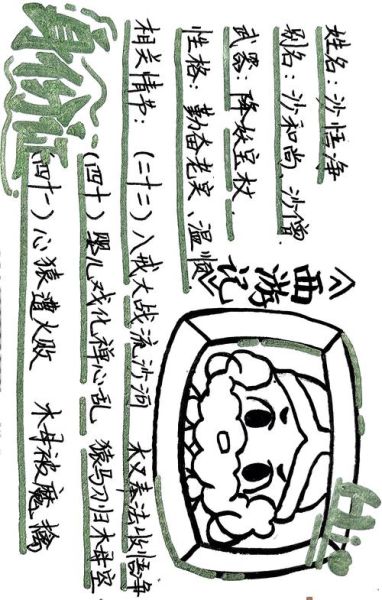 身份证
姓名：沙悟净
别名：沙和尚、沙僧
武器：降妖宝杖
性格：勤奋老实、温顺
《西游记》
Hi
相关情节：（二十二）八戒大战流沙河 木叉奉法收悟净
（四十）婴儿戏化禅心乱 猿马刀归木母空
（四十一）心猿遭火败 木母被魔擒